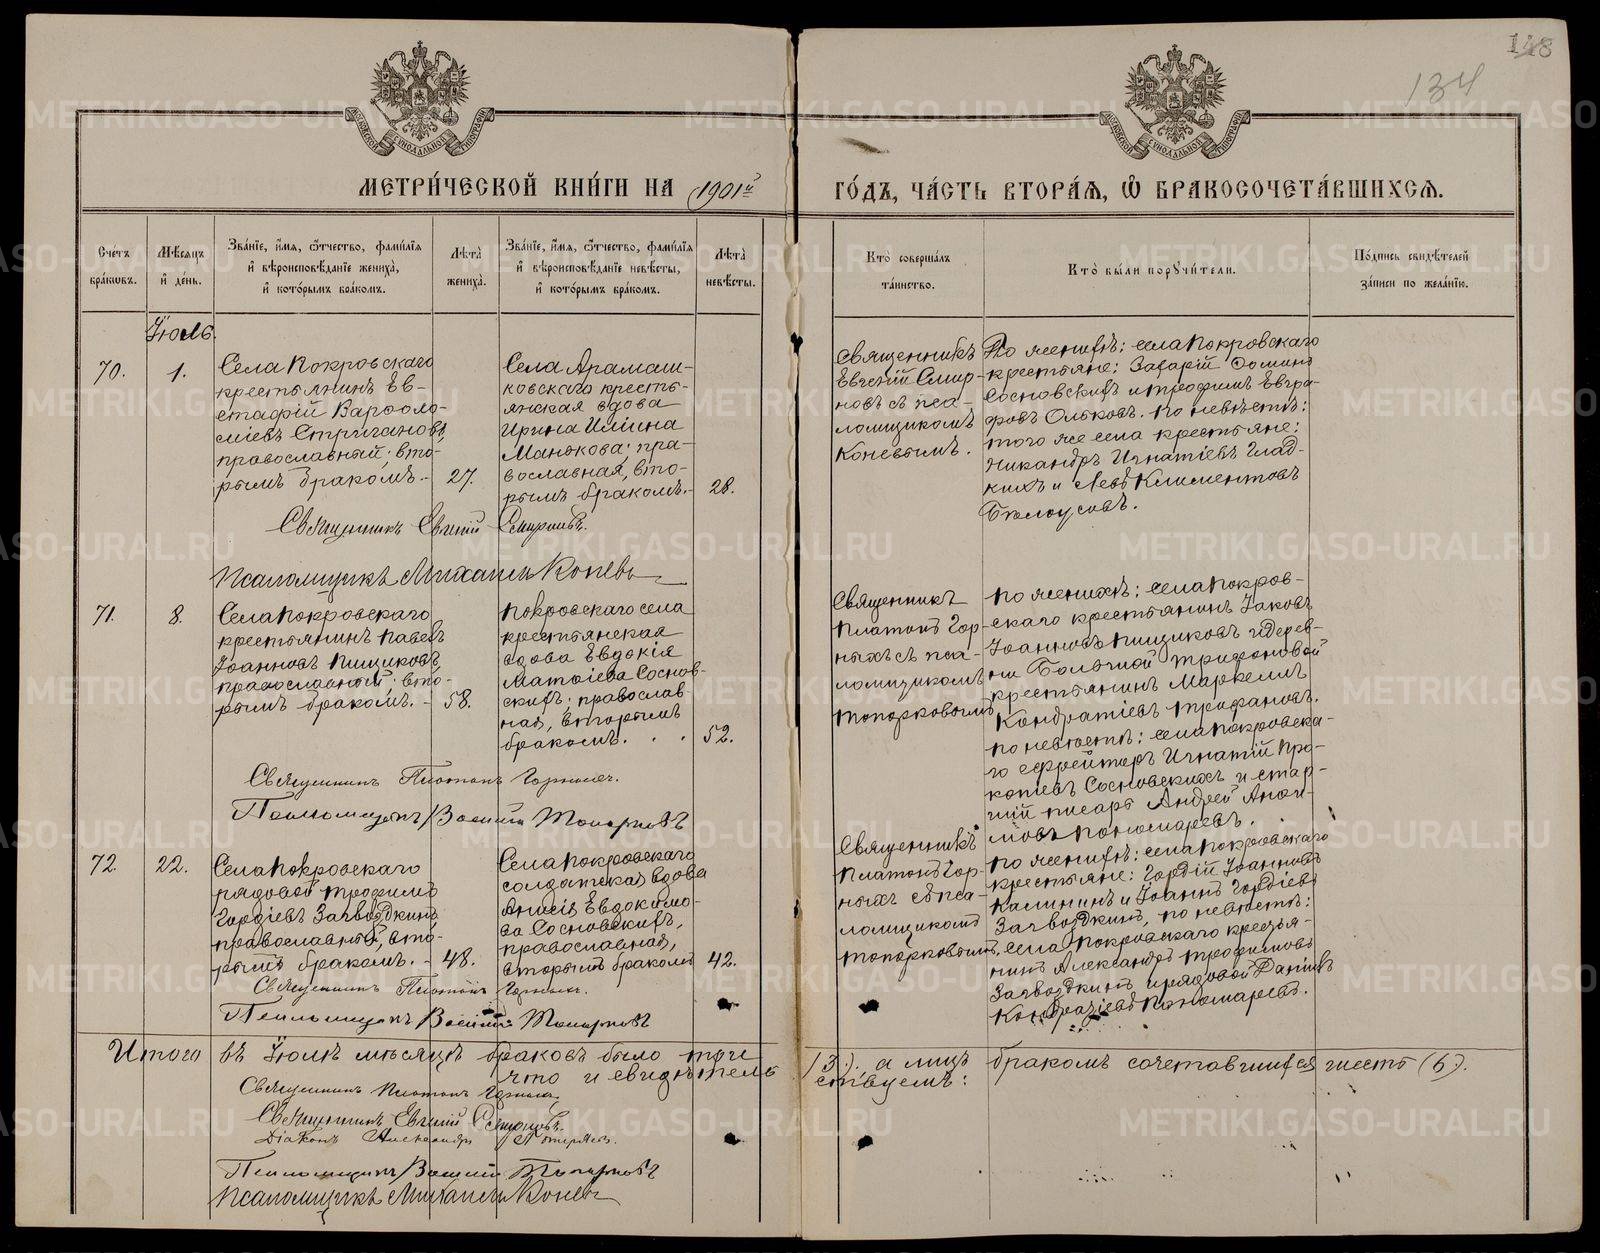 148
134
МЕТРИ́ЧЕСКОЙ КНИ́ГИ НА 1901й ГО́ДЪ, ЧА́СТЬ ВТОРА́Я, Ѡ҆ БРАКОСОЧЕТА́ВШИХСЯ.
Сче́тъ бра́ковъ.
Мѣ́сяцъ и҆ де́нь.
Зва́нїе, и҆́мя, ѻ҆́тчество, фами́лїя и҆ вѣроисповѣ́данїе жениха̀, и҆ кото́рымъ бра́комъ.
Лѣта̀ жениха̀.
Зва́нїе, и҆́мя, ѻ҆́тчество, фами́лїя и҆ вѣроисповѣ́данїе невѣ́сты, и҆ кото́рымъ бра́комъ.
Лѣта̀ невѣ́сты.
Кто̀ соверша́лъ та́инство.
Кто̀ бы́ли порꙋчи́тели.
По́дпись свидѣ́телей за́писи по жела́нїю.
Іюль.
70.
1.
Села Покровскаго
крестьянинъ Ев-
стафій Варѳоло-
міевъ Стригановъ,
православный; вто-
рымъ бракомъ.
27.
Села Арамаш-
ковскаго кресть-
янская вдова
Ирина Иліина
Манькова; пра-
вославная, вто-
рымъ бракомъ.
28.
Священникъ
Евгеній Смир-
новъ съ пса-
ломщикомъ
Коневымъ.
По женихѣ: села Покровскаго
крестьяне: Захарій Ѳоминъ
Сосновскихъ и Трофимъ Евгра-
фовъ Ольковъ. По невѣстѣ:
того же села крестьяне:
Никандръ Игнатіевъ Глад-
кихъ и Левъ Климентовъ
Бѣлоусовъ.
Священникъ Евгеній Смирновъ.
Псаломщикъ Михаилъ Коневъ
71.
8.
Села Покровскаго
крестьянинъ Павелъ
Іоанновъ Пищиковъ,
православный; вто-
рымъ бракомъ.
58.
Покровскаго села
крестьянская
вдова Евдокія
Матѳіева Соснов-
скихъ; православ-
ная, вторымъ
бракомъ.
52.
Священникъ
Платонъ Гор-
ныхъ съ пса-
ломщикомъ
Топорковымъ
По женихѣ: села Покров-
скаго крестьянинъ Іаковъ
Іоанновъ Пищиковъ и дерев-
ни Большой Трифоновой
крестьянинъ Маркеллъ
Кондратіевъ Трифановъ.
По невѣстѣ: села Покровска-
го ефрейторъ Игнатій Про-
копіевъ Сосновскихъ и стар-
шій писарь Андрей
Пономаревъ.
Священникъ Платонъ Горныхъ.
Псаломщикъ Василій Топорковъ
72.
22.
Села Покровскаго
рядовой Трофимъ
Гордіевъ Загвоздкинъ,
православный, вто-
рымъ бракомъ.
48.
Села Покровскаго
солдатская вдова
Анисія Евдокимо-
ва Сосновскихъ,
православная,
вторымъ бракомъ
42.
Священникъ
Платонъ Гор-
ныхъ съ пса-
ломщикомъ
Топорковымъ.
По женихѣ: села Покровскаго
крестьяне: Гордій Іоанновъ
Калининъ и Іоаннъ Гордіевъ
Загвоздкинъ, по невѣстѣ:
села Покровскаго крестья-
нинъ Александръ Трофимовъ
Загвоздкинъ и рядовой Даніилъ
Кондратіевъ Пономаревъ.
Священникъ Платонъ Горныхъ.
Псаломщикъ Василій Топорковъ
Итого въ Іюлѣ мѣсяцѣ браковъ было три (3), а лицъ бракомъ сочетавшихся шесть (6).
что и свидѣтельствуемъ:
Священникъ Платонъ Горныхъ
Священникъ Евгеній Смирновъ.
Діаконъ Александръ
Псаломщикъ Василій Топорковъ
Псаломщикъ Михаилъ Коневъ
METRIKI.GASO-URAL.RU